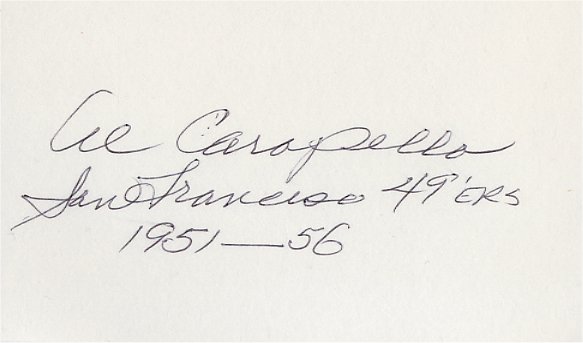 Al Carapella
San Francisco 49'ERS
1951—56